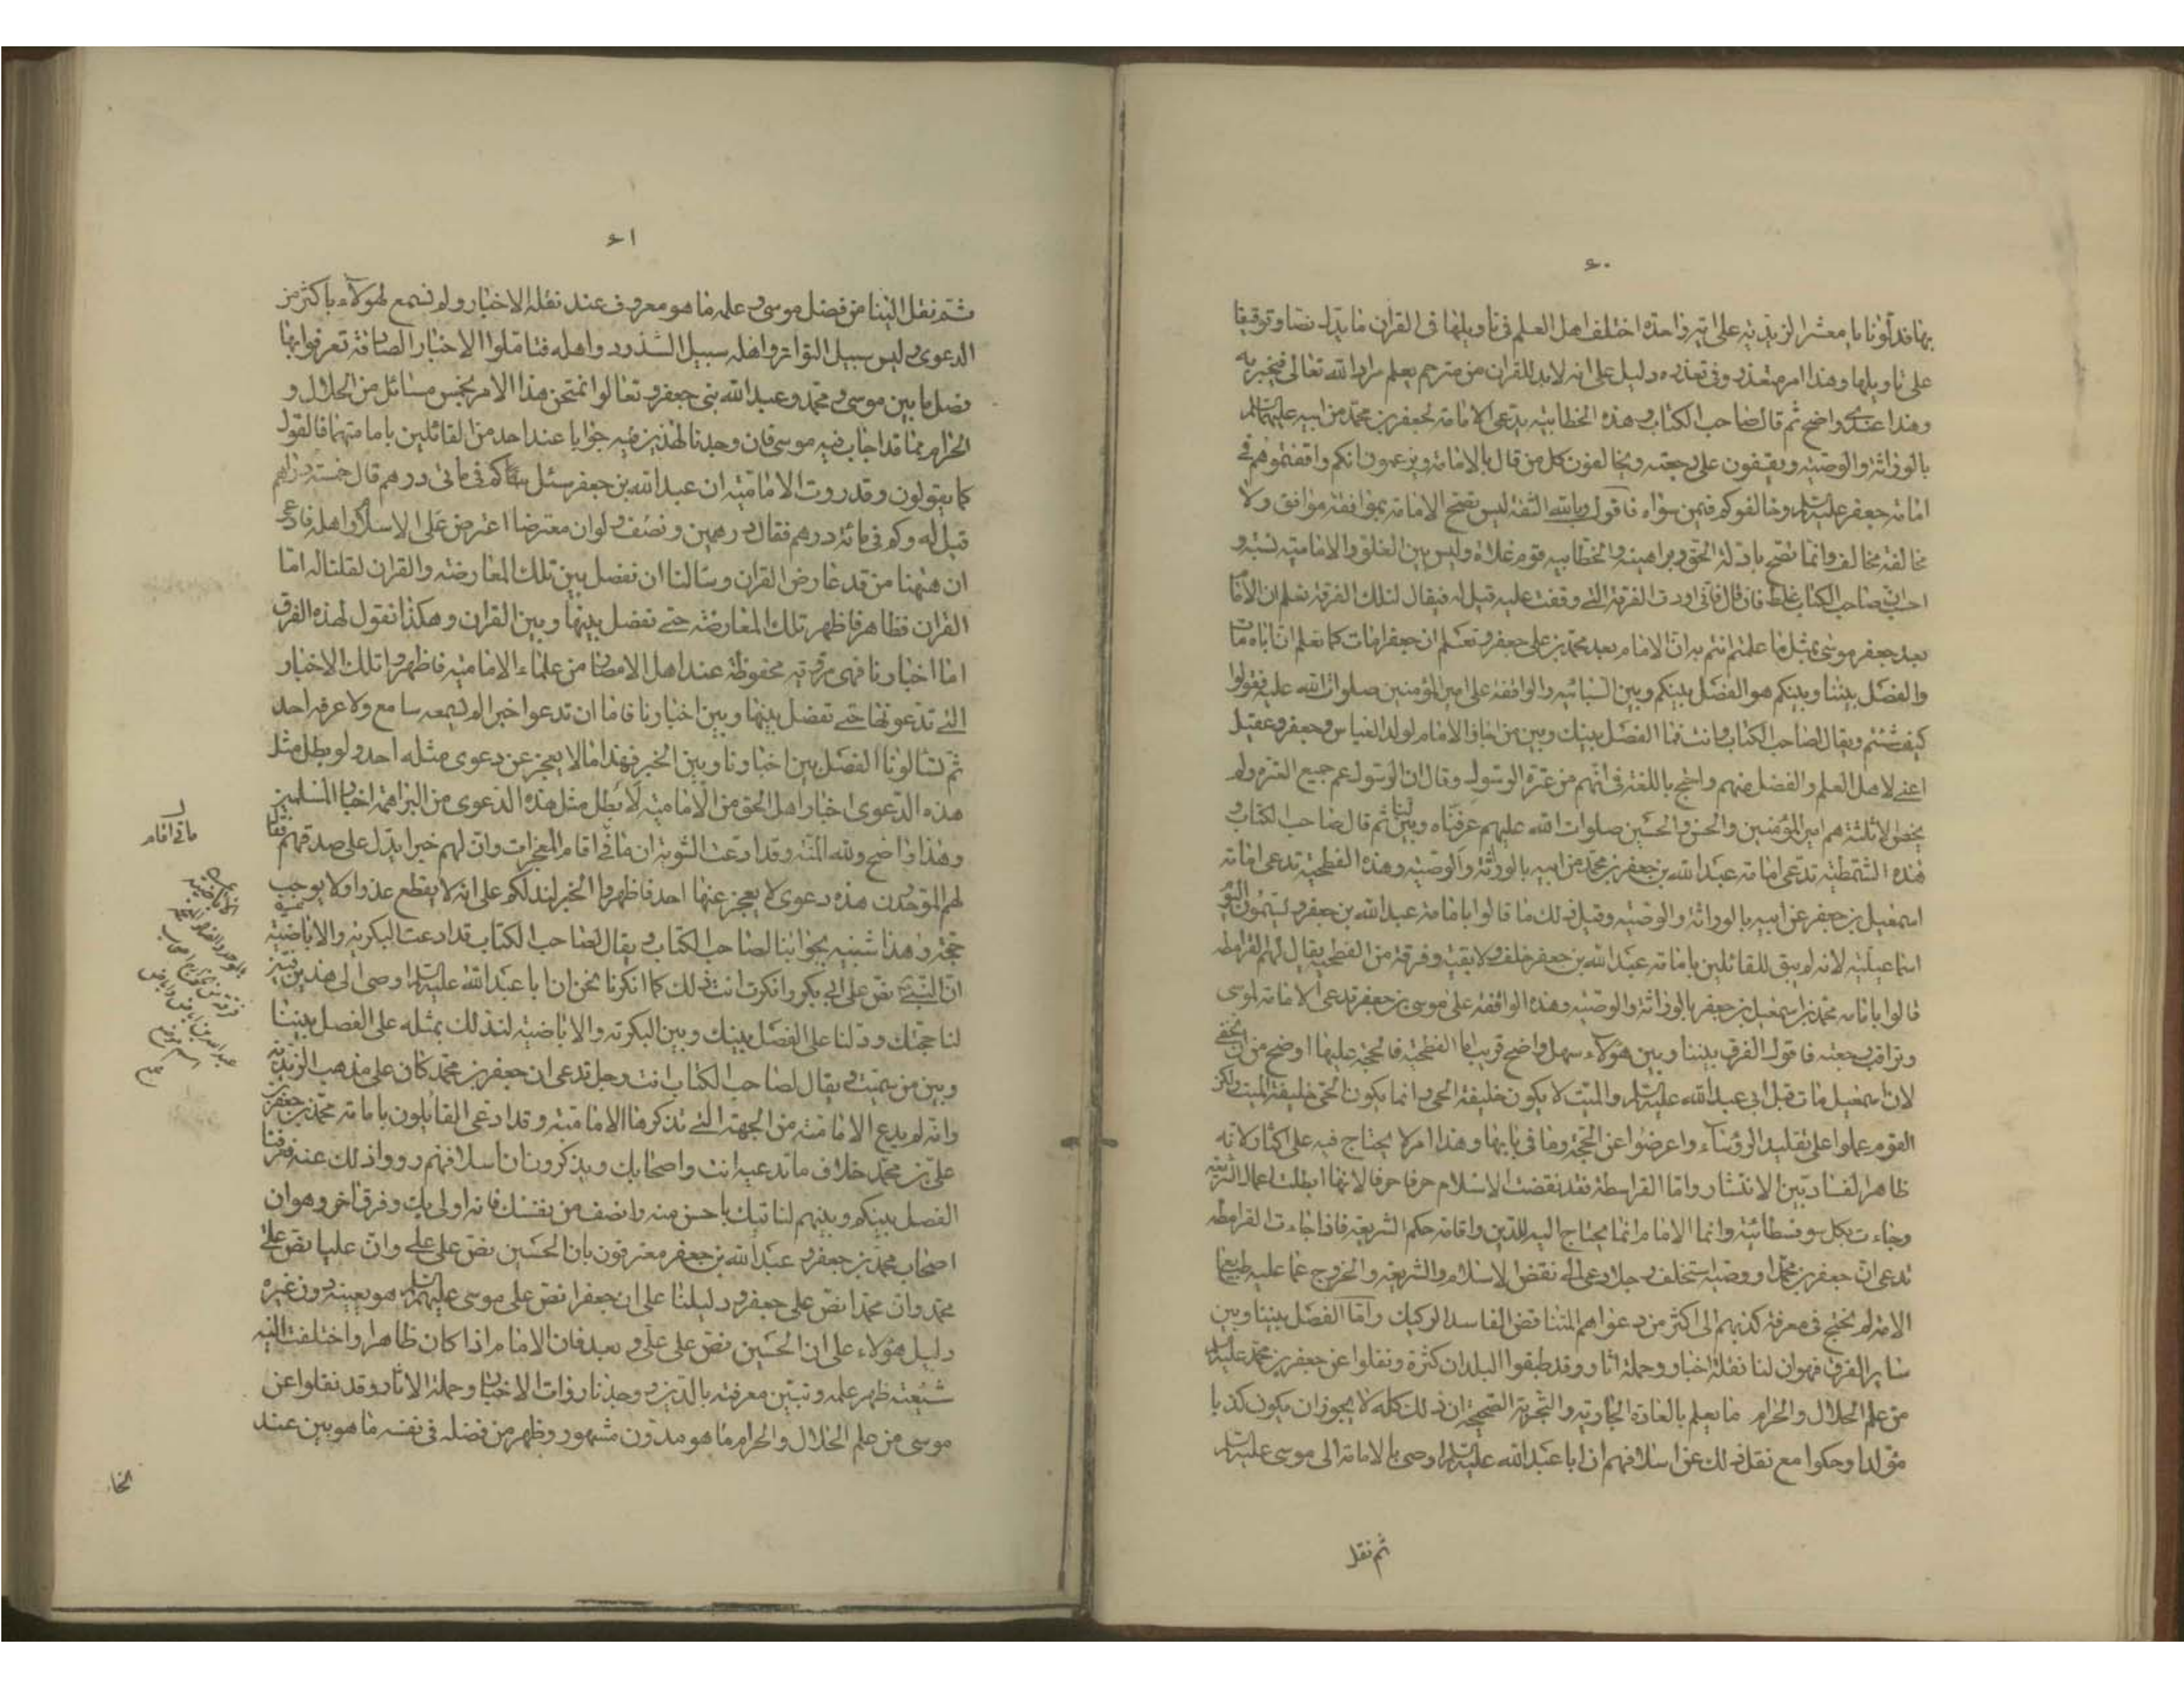 ٦٠
بها فدلّونا يا معشر الزيدية على آية واحدة اختلف اهل العلم في تأويلها في القرآن ما يدل نصا وتوقيفا
على تأويلها وهذا امر متعذر وفي تعذره دليل على انه لابد للقرآن من مترجم يعلم مراد الله تعالى فيخبر به
وهذا عندي واضح ثم قال صاحب الكتاب وهذه الخطابية يدعى الامامة لجعفر بن محمد من ابيه عليهما السلم
بالوراثة والوصية ويقفون على رجعته ويخالفون كل من قال بالامامة ويزعمون انكم وافقتموهم في
امامة جعفر عليه السلم وخالفوكم فيمن سواه فاقول وبالله الثقة ليس تصح الامامة بموافقة موافق ولا
مخالفة مخالف وانما تصح بادلة الحق وبراهينه والخطابيه قوم غلاة وليس بين الغلو والامامية نسبة و
احسب ان صاحب الكتاب غلط فان قال فاني اردت الفرقة التي وقفت عليه قيل له فيقال لتلك الفرقة نعلم ان الامام
بعد جعفر موسى بمثل ما علمتم انتم به ان الامام بعد محمد بن علي جعفر ونعلم ان جعفرا مات كما نعلم ان اباه مات
والفصل بيننا وبينكم هو الفصل بينكم وبين السبائيه والواقفة على امير المؤمنين صلوات الله عليه فقولوا
كيف شئتم ويقال لصاحب الكتاب وانت فما الفصل بينك وبين من اجاز الامام لولد العباس وجعفر وعقيل
اعني لاهل العلم والفضل منهم واحتج باللغة في انهم من عترة الرسول وقال ان الرسول عم جميع العترة ولم
يخص الا ثلثة هم امير المؤمنين والحسن والحسين صلوات الله عليهم عرفناه وبين لنا ثم قال صاحب الكتاب و
هذه الشمطية تدعى امامة عبد الله بن جعفر بن محمد من ابيه بالوراثة والوصية وهذه الفطحية تدعى امامة
اسمعيل بن جعفر عن ابيه بالوراثة والوصية وقبل ذلك ما قالوا بامامة عبد الله بن جعفر ويسمون اليوم
اسماعيلية لانه لم يبق للقائلين بامامة عبد الله بن جعفر خلف ولا بقية وفرقة من الفطحية يقال لهم القرامطة
قالوا بامامة محمد بن اسمعيل بن جعفر بالوراثة والوصية وهذه الواقفة على موسى بن جعفر تدعى الامامة لموسى
وتراقب رجعته فاقول الفرق بيننا وبين هؤلاء سهل واضح قريب اما الفطحية فالحجة عليها اوضح من ان يخفى
لان اسمعيل مات قبل ابي عبد الله عليه السلم والميت لا يكون خليفة الحي وانما يكون الحي خليفة الميت ولكن
القوم عملوا على تقليد الرؤساء واعرضوا عن الحجة وما في بابها وهذا امر لا يحتاج فيه على اكثار لانه
ظاهر الفساد بين الانتشار واما القرامطة فقد نقضت الاسلام حرفا حرفا لانها ابطلت اعمال الشريعة
وجاءت بكل سوفسطائية وانما الامام انما يحتاج اليه للدين واقامة حكم الشريعة فاذا جاءت القرامطة
تدعى ان جعفر بن محمد او وصيه استخلف رجلا دعى الى نقض الاسلام والشريعة والخروج عما عليه طبيعها
الامة لم نحتج في معرفة كذبهم الى اكثر من دعواهم المتناقض الفاسد الركيك واما الفصل بيننا وبين
سائر الفرق فهو ان لنا نقلة اخبار وحملة آثار وقد طبقوا البلدان كثرة ونقلوا عن جعفر بن محمد عليه السلم
من علم الحلال والحرام ما يعلم بالعادة الجارية والتجربة الصحيحة ان ذلك كله لا يجوز ان يكون كذبا
مولدا وحكوا مع نقل ذلك عن اسلافهم ان ابا عبد الله عليه السلم اوصى بالامامة الى موسى عليه السلم
ثم نقل
٦١
ثم نقل الينا من فضل موسى وعلمه ما هو معروف عند نقلة الاخبار ولم نسمع لهؤلاء باكثر من
الدعوى وليس سبيل التواتر واهله سبيل الشذوذ واهله فتاملوا الاخبار الصادقة تعرفوا بها
فصل ما بين موسى ومحمد وعبد الله بني جعفر وتعالوا نمتحن هذا الامر بخمس مسائل من الحلال و
الحرام مما قد اجاب فيه موسى فان وجدنا لهذين فيه جوابا عند احد من القائلين بامامتهما فالقول
كما يقولون وقد روت الامامية ان عبد الله بن جعفر سئل كم في مأتي درهم قال خمسة دراهم
قيل له وكم في مائة درهم فقال درهمين ونصف ولو ان معترضا اعترض على الاسلام واهله فادعى
ان ههنا من قد عارض القرآن وسالنا ان نفصل بين تلك المعارضة والقرآن لقلنا له اما
القرآن فظاهر فاظهر تلك المعارضة حتى نفصل بينها وبين القرآن وهكذا نقول لهذه الفرق
اما اخبارنا فهي مروية محفوظة عند اهل الامصار من علماء الامامية فاظهروا تلك الاخبار
التي تدعونها حتى نفصل بينها وبين اخبارنا فاما ان تدعوا خبرا لم يسمعه سامع ولا عرفه احد
ثم تسالونا الفصل بين اخبارنا وبين الخبر فهذا ما لا يعجز عن دعوى مثله احد ولو بطل مثل
هذه الدعوى اخبار اهل الحق من الامامية لابطل مثل هذه الدعوى من البراهمة اخبار المسلمين
وهذا واضح ولله المنة وقد ادعت الثنوية ان ماني اقام المعجزات وان لهم خبرا يدل على صدقهم فقال
لهم الموحدون هذه دعوى لا يعجز عنها احد فاظهروا الخبر لندلكم على انه لا يقطع عذرا ولا يوجب
حجة وهذا شبيه بجوابنا لصاحب الكتاب ويقال لصاحب الكتاب قد ادعت البكرية والاباضية
ان النبي نص على ابي بكر وانكرت انت ذلك كما انكرنا نحن ان ابا عبد الله عليه السلم اوصى الى هذين فبين
لنا حجتك ودلنا على الفصل بينك وبين البكرية والاباضية لندلك بمثله على الفصل بيننا
وبين من سميت ويقال لصاحب الكتاب انت رجل تدعى ان جعفر بن محمد كان على مذهب الزيدية
وانه لم يدع الامامة من الجهة التي تذكرها الامامية وقد ادعى القائلون بامامة محمد بن جعفر بن
علي بن محمد خلاف ما تدعيه انت واصحابك ويذكرون ان اسلافهم رووا ذلك عنه فعرفنا
الفصل بينكم وبينهم لناتيك باحسن منه وانصف من نفسك فانه اولى بك وفرق آخر وهو ان
اصحاب محمد بن جعفر وعبد الله بن جعفر معترفون بان الحسين نص على علي وان عليا نص على
محمد وان محمدا نص على جعفر ودليلنا على ان جعفرا نص على موسى عليهم السلم هو بعينه دون غيره
دليل هؤلاء على ان الحسين نص على علي وبعد فان الامام اذا كان ظاهرا واختلفت اليه
شيعته ظهر علمه وتبين معرفته بالدين ووجدنا رواة الاخبار وحملة الآثار وقد نقلوا عن
موسى من علم الحلال والحرام ما هو مدون مشهور وظهر من فضله في نفسه ما هو بين عند
ماني اقام
الخا